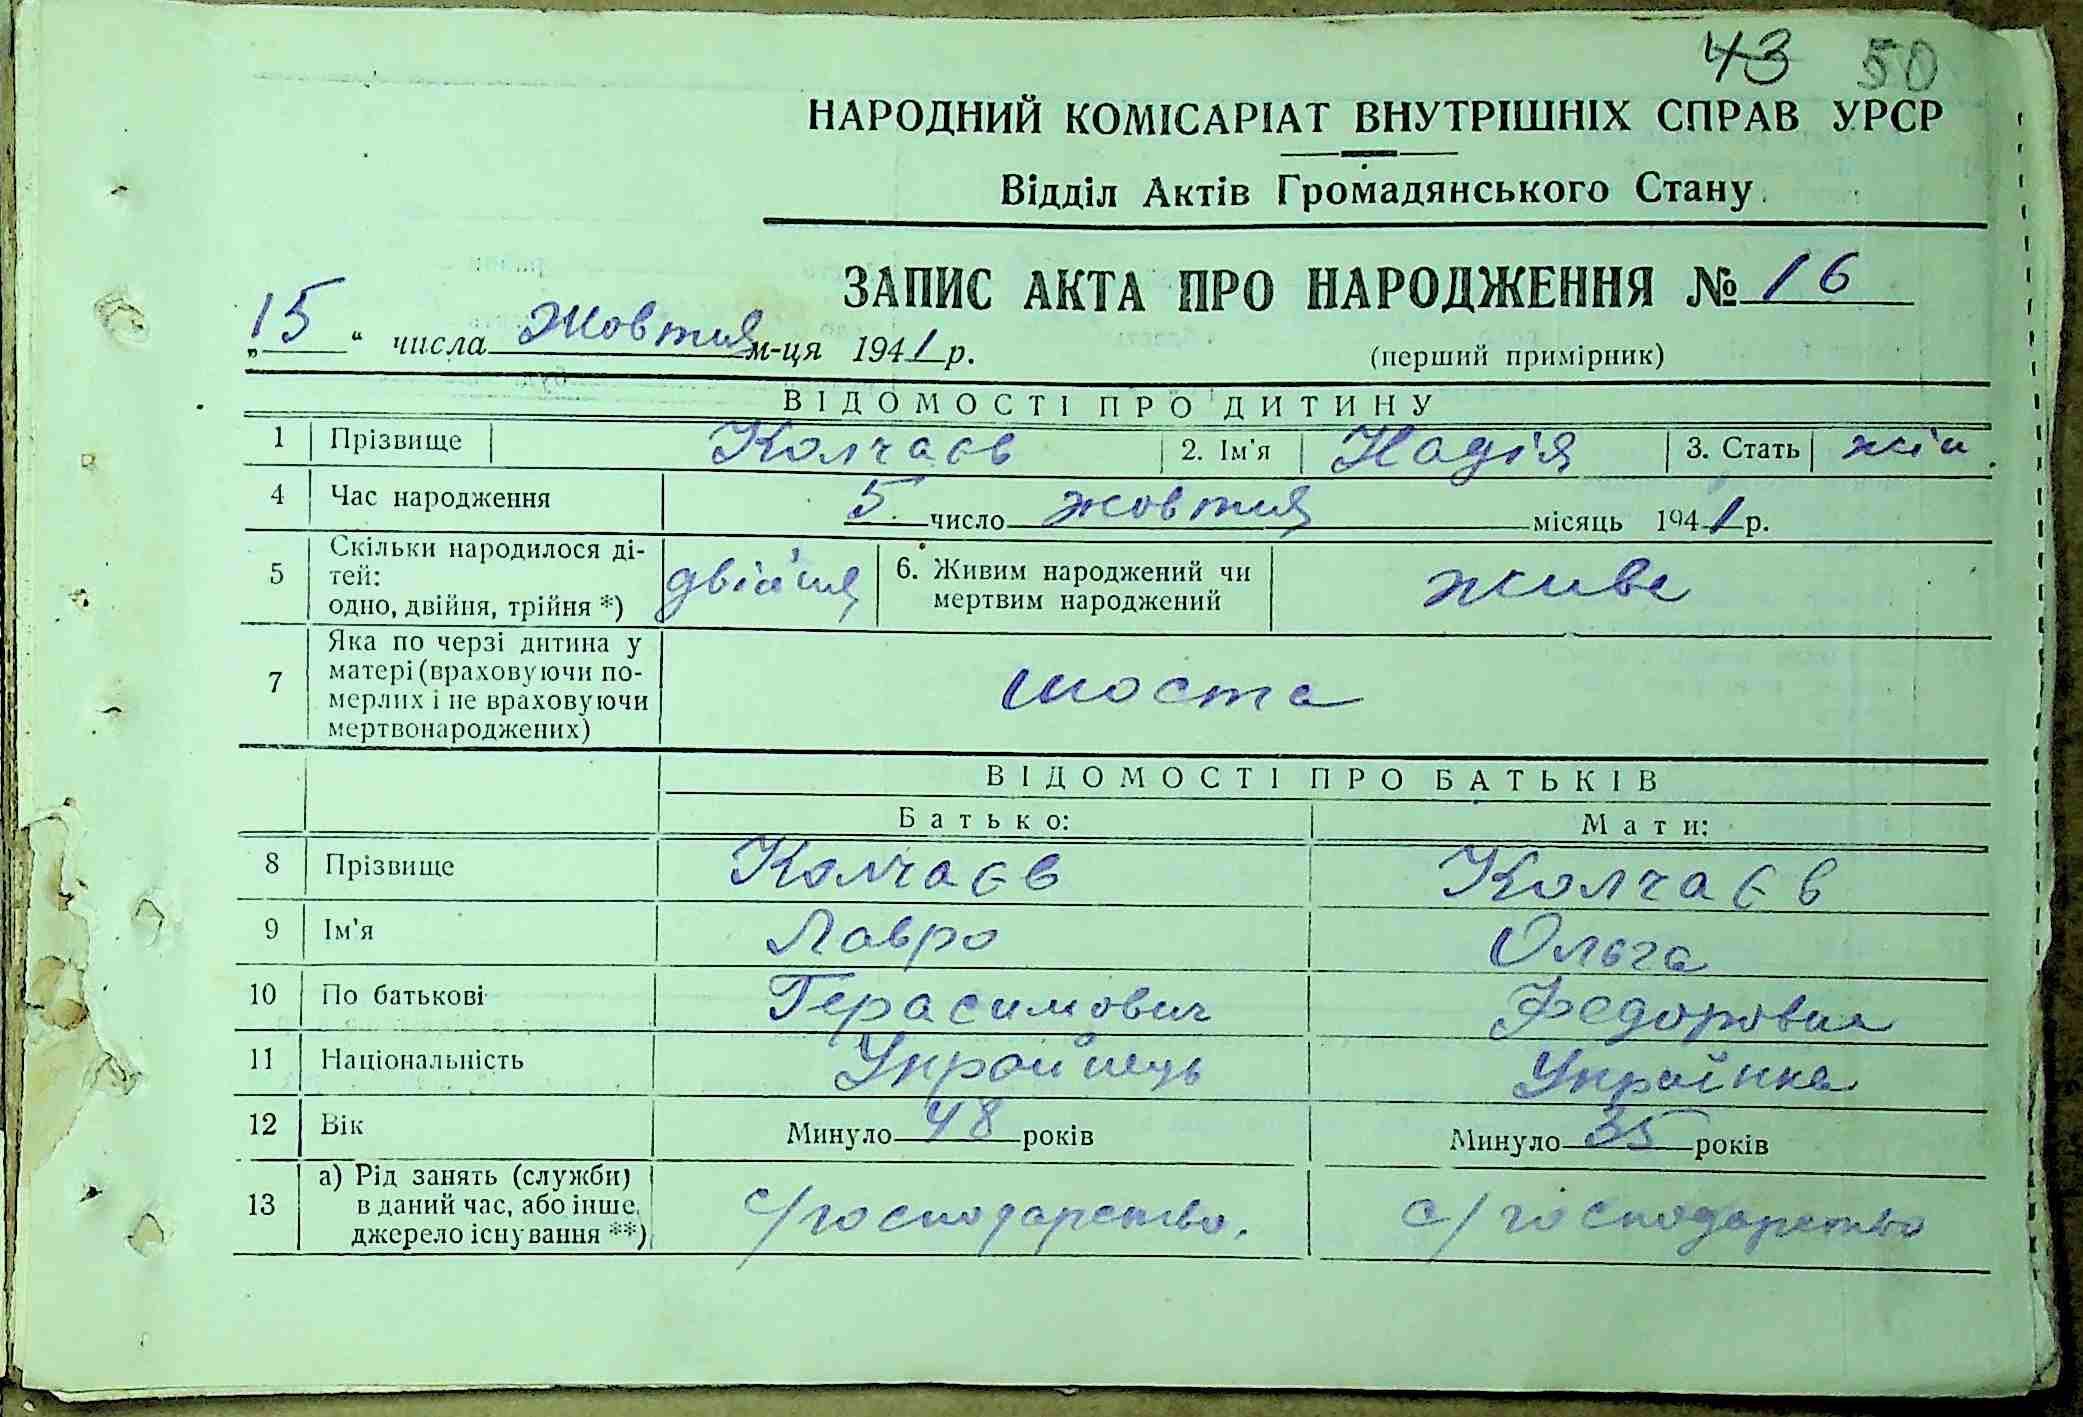 43 50
НАРОДНИЙ КОМІСАРІАТ ВНУТРІШНІХ СПРАВ УРСР
Відділ Актів Громадянського Стану
ЗАПИС АКТА ПРО НАРОДЖЕННЯ № 16
„15“ числа Жовтня м-ця 1941 р.
(перший примірник)
ВІДОМОСТІ ПРО ДИТИНУ
1 Прізвище Колчаєв 2. Ім'я Надія 3. Стать жін.
4 Час народження 5 число жовтня місяць 1941 р.
5 Скільки народилося ді-
тей:
одно, двійня, трійня *) двійня
6. Живим народжений чи
мертвим народжений живе
7 Яка по черзі дитина у
матері (враховуючи по-
мерлих і не враховуючи
мертвонароджених) шоста
ВІДОМОСТІ ПРО БАТЬКІВ
Батько: Мати:
8 Прізвище Колчаєв Колчаєв
9 Ім'я Лавро Ольга
10 По батькові Герасимович Федоровна
11 Національність Українець Українка
12 Вік Минуло 48 років Минуло 35 років
13 а) Рід занять (служби)
в даний час, або інше
джерело існування **) с/господарство. с/господарство